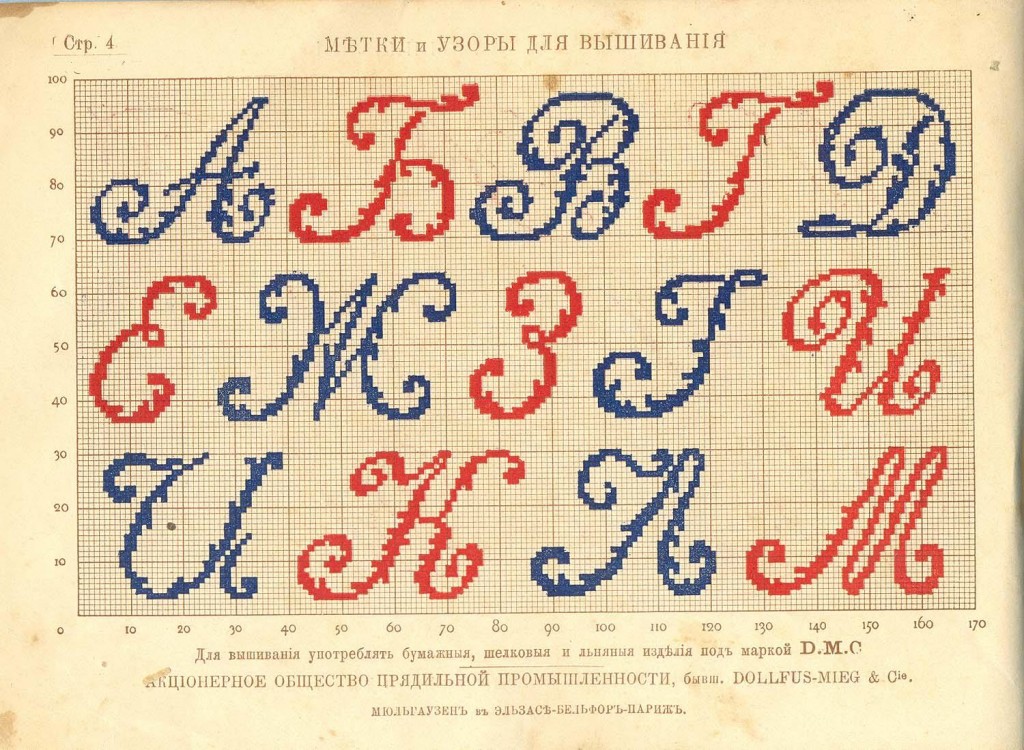 Стр. 4
МѢТКИ и УЗОРЫ ДЛЯ ВЫШИВАНІЯ
100
90
80
70
60
50
40
30
20
10
А Б В Г Д
Е Ж З І И
И К Л М
0 10 20 30 40 50 60 70 80 90 100 110 120 130 140 150 160 170
Для вышиванія употреблять бумажныя, шелковыя и льняныя издѣлія подъ маркой D.M.C
АКЦІОНЕРНОЕ ОБЩЕСТВО ПРЯДИЛЬНОЙ ПРОМЫШЛЕННОСТИ, бывш. DOLLFUS-MIEG & Cie.
МЮЛЬГАУЗЕНЪ въ ЭЛЬЗАСѢ-БЕЛЬФОРЪ-ПАРИЖЪ.